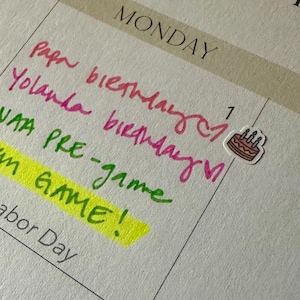 MONDAY
1
Papa birthday
Yolanda birthday
PRE-game
GAME!
abor Day